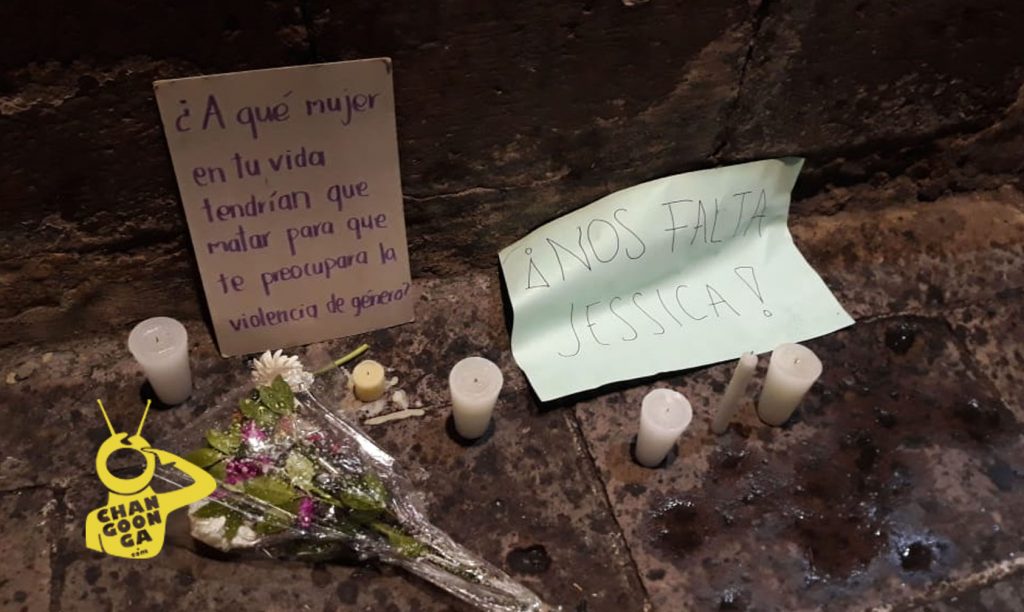 ¿A qué mujer
en tu vida
tendrían que
matar para que
te preocupara la
violencia de género?
¡NOS FALTA
JESSICA!
CHAN
GOON
GA
.com